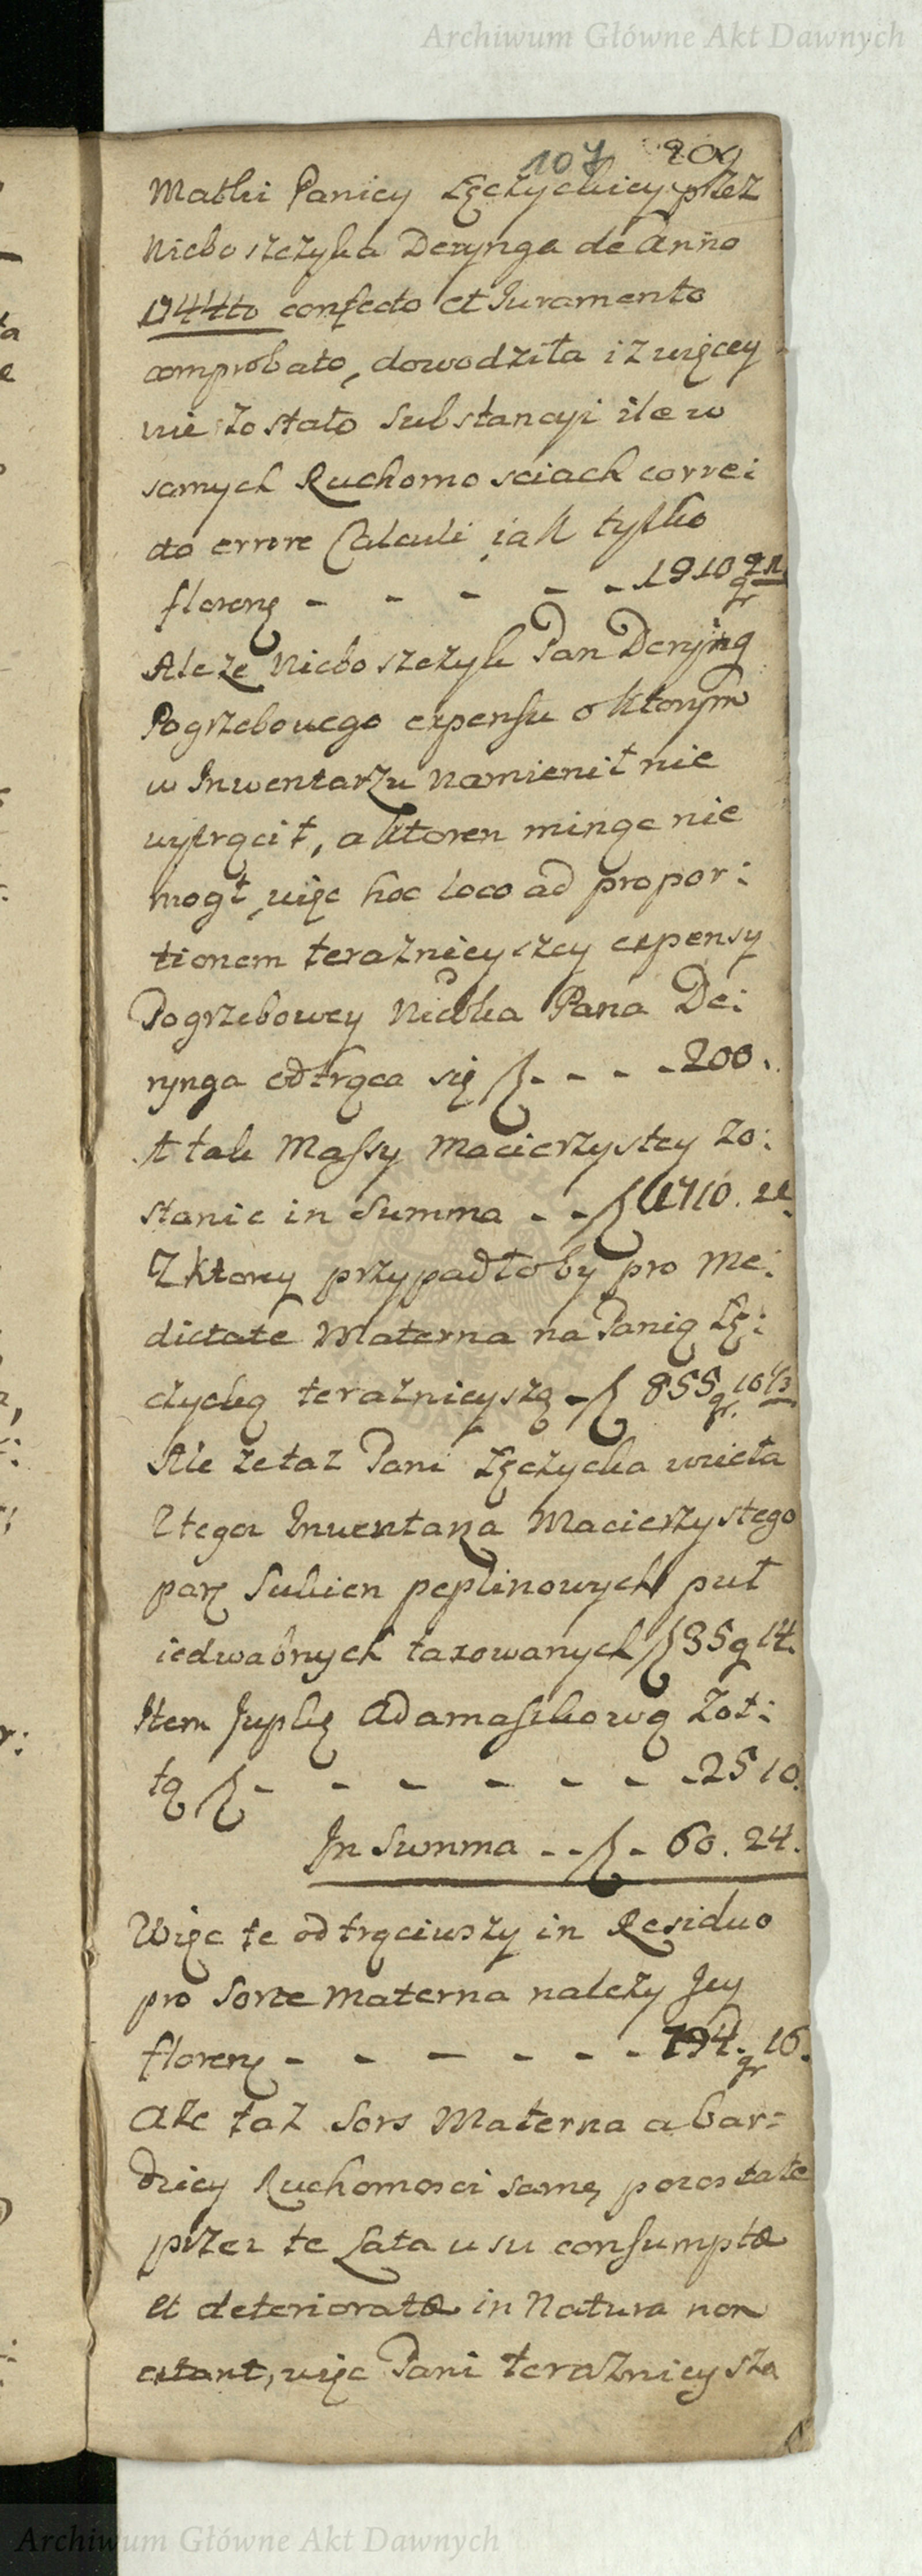 Archiwum Główne Akt Dawnych
107 209
Matki Paniey Łęczyckiey przez
Nieboszczyka Derynga de Anno
1744to confecto et Juramento
comprobato, dowodziła iz więcey
nie zostało Substancyi ile w
samych Ruchomosciach correi
do errore Calculi iak tylko
florenę - - - - - 1910 gr 21
Ale ze Nieboszczyk Pan Deryng
Pogrzebowego expensu o ktorym
w Inwentarzu namienił nie
wytrącił, a ktoren minąc nie
mogł, więc hoc loco ad propor:
tionem teraznieyszey expensy
Pogrzebowey Niebka Pana De:
rynga odtrąca się f - - - - 200.
A tak Massy Macierzystey zo:
stanie in Summa - - f 1710. 21
Z ktorey przypadłoby pro me:
dietate Materna na Panią Łę:
czycką teraznieyszą - f 855 gr. 10 1/2
Ale ze taz Pani Łęczycka wzieła
z tego Inwentarza Macierzystego
parę Sukien peplinowych puł
iedwabnych taxowanych f 35 g 14.
Item Jupkę Adamaszkową Zoł:
tą f - - - - - - - 25 10.
In Summa - - f - 60. 24.
Więc te odtrąciwszy in Residuo
pro Sorte Materna nalezy Jey
florenę - - - - - - 794. gr 16.
Ale taz Sors Materna a bar=
dziey Ruchomosci same, pozostałe
przez te Lata usu consumptæ
et deterioratæ in Natura non
extant, więc Pani teraznieysza
Archiwum Główne Akt Dawnych